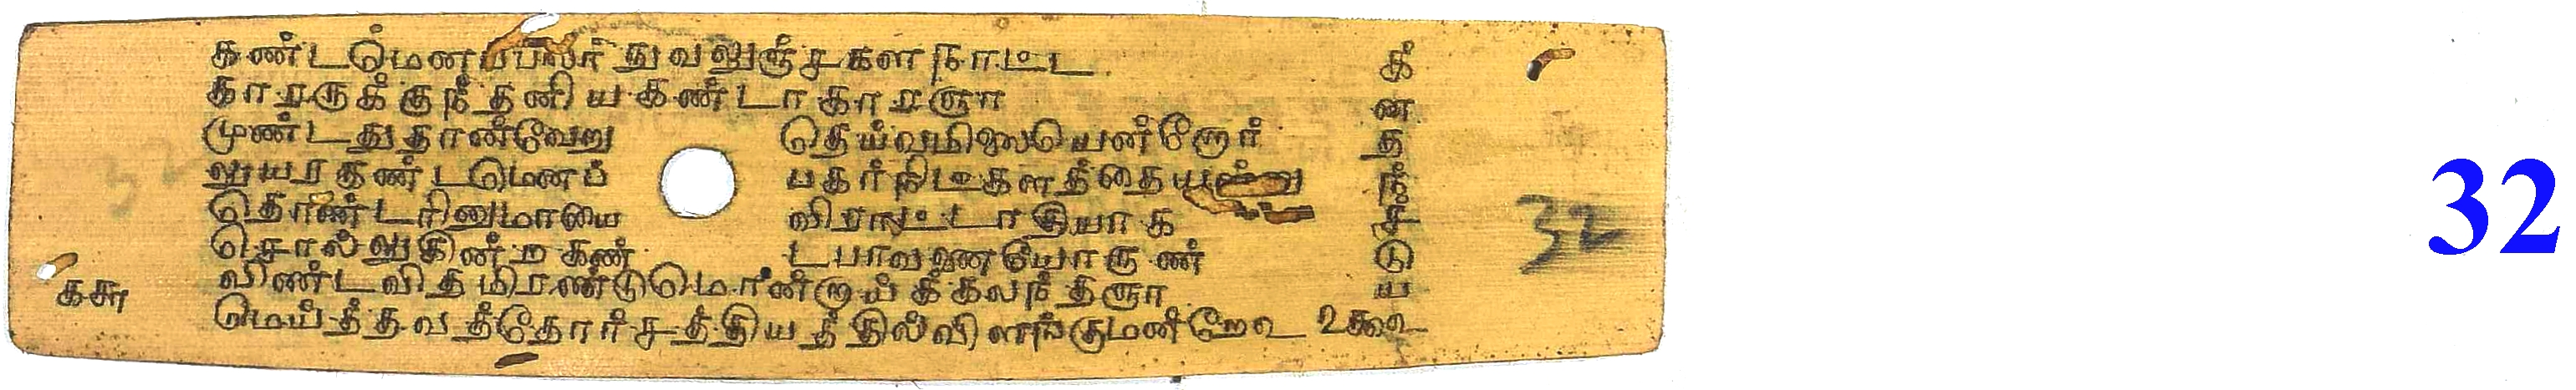 கண்டமெனப்பலர் துவலுஞ்சகள நாட்ட
காரருக்குந் தனிய கண்டாகாரஞா
முண்டதுதான்வேறு தெய்வமிலையென்றோர்
லுயரகண்டமெனப் பகர்நிட்களத்தைய
தொண்டரினுமாயை விராட்டாதியாக
சொல்லுகின்ற கண் டபாவனையோருண்
விண்டவிதமிரண்டுமொன்றாய்க் கலந்தஞா
மெய்த்தவத்தோர்சத்தியத்தில்விளங்குமன்றே
ககூ
க்
ன
த
ந்
ச
டு
ய
32
32